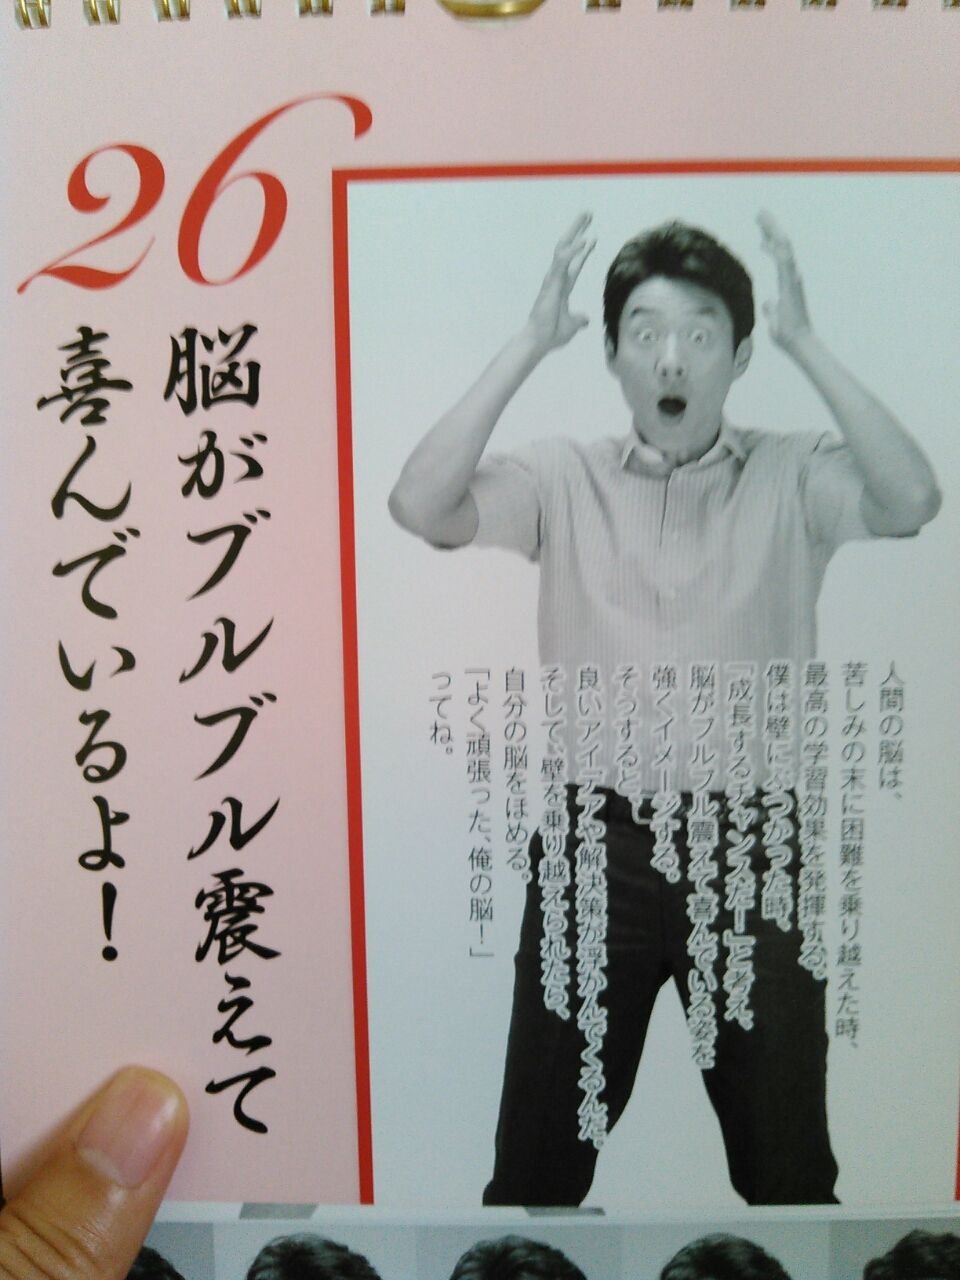 26
脳がブルブル震えて
喜んでいるよ！
人間の脳は、
苦しみの末に困難を乗り越えた時、
最高の学習効果を発揮する。
僕は壁にぶつかった時、
「成長するチャンスだ！」と考え、
脳がブルブル震えて喜んでいる姿を
強くイメージする。
そうすると、
良いアイデアや解決策が浮かんでくるんだ。
そして、壁を乗り越えられたら、
自分の脳をほめる。
「よく頑張った、俺の脳！」
ってね。